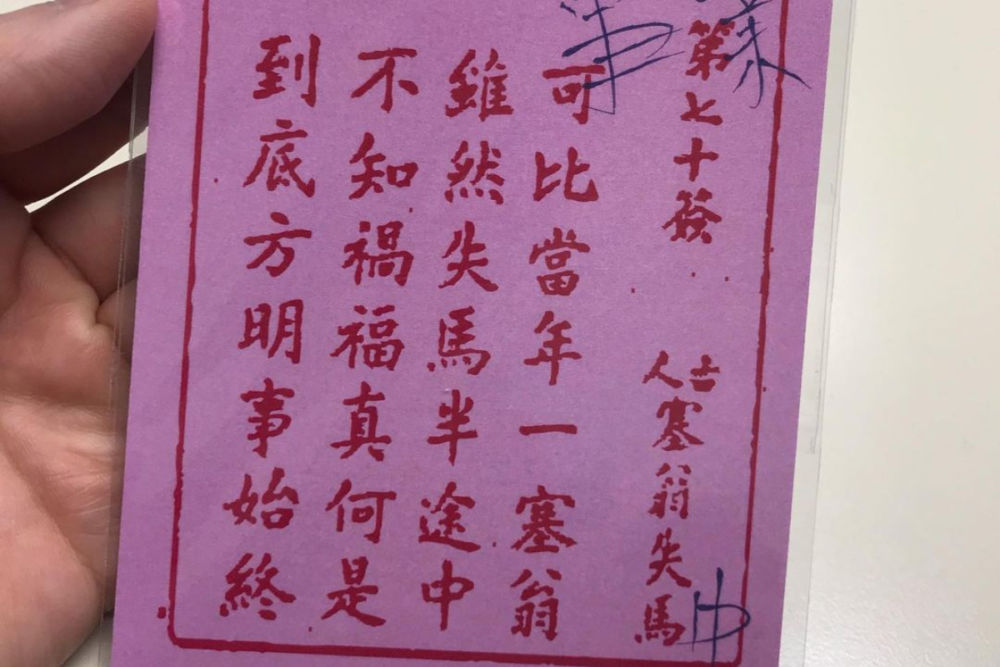 第七十簽 古人塞翁失馬 中
可比當年一塞翁
雖然失馬半途中
不知禍福真何是
到底方明事始終